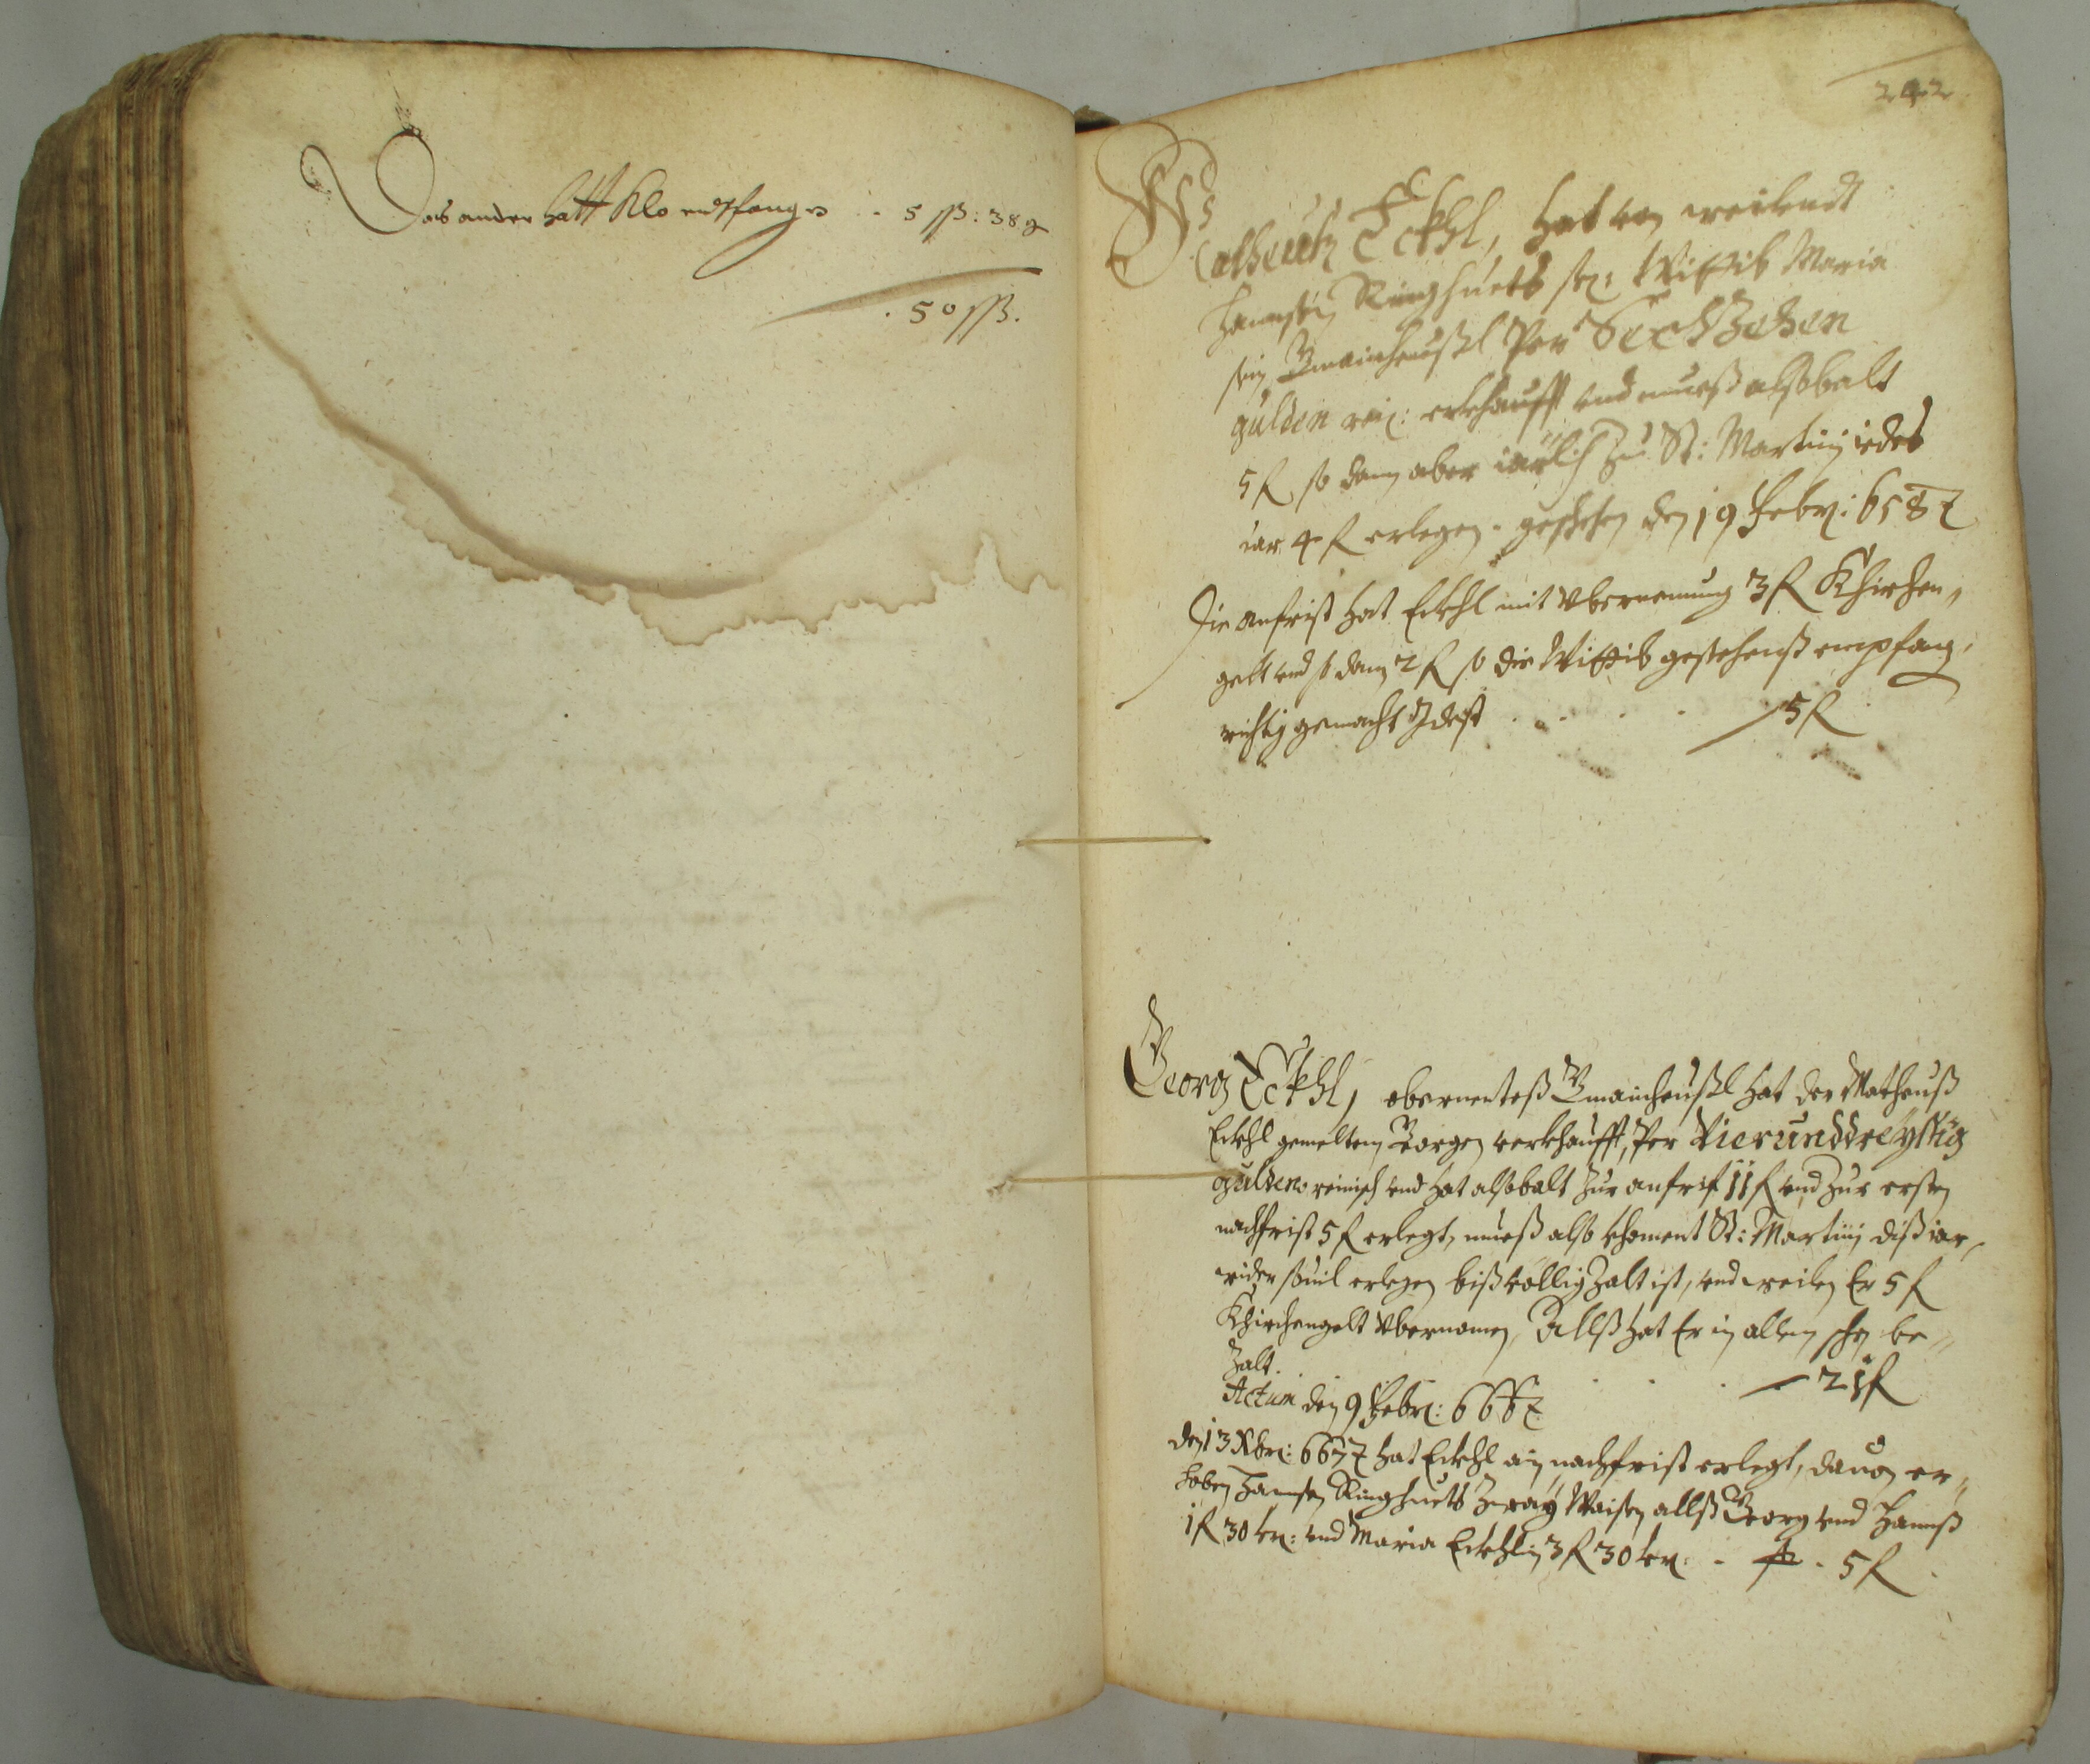 Das ander hatt Klo entpfangen . . 5 ß : 38 ₰
. 50 ß.
242
Matheuß Eckhl, hat von weilendt
Hannsen Ringhuets se: Wittib Maria
sein Gmainheußl Per Sechzehen
gulden rei: erkhaufft und mueß alsobalt
5 f so dann aber iärlich zu St: Martinj iedes
iar 4 f erlegen. geschehen den 19 Febr: 658
Die anfrist hat Eckhl mit Vbernemung 3 f Khirchen,
gelt und so dann 2 f so die Wittib gestehenß empfang,
richtig gemacht Idest . . . . 5 f
Georg Eckhl, obernenteß Gmainheußl hat der Matheuß
Eckhl gemeltem Georgen verkhaufft, Per Vierunddreyssig
gulden reinisch und hat alsobalt zur anfrist 11 f und zur ersten
nachfrist 5 f erlegt, mueß also khoment St: Martinj diß iar,
wider souil erlegen biß völlig zalt ist, und weilen Er 5 f
Khirchengelt Vbernomen, Allß hat Er in allem schon be-
zalt. . . . 21 f
Actum den 9 Febr: 666
den 13 Xbr: 667 hat Eckhl ain nachfrist erlegt, dauon er-
hoben Hannsen Ringhuets zway Waisen allß Georg und Hannß
1 f 30 kr: und Maria Eckhlin 3 f 30 kr: . . 5 f